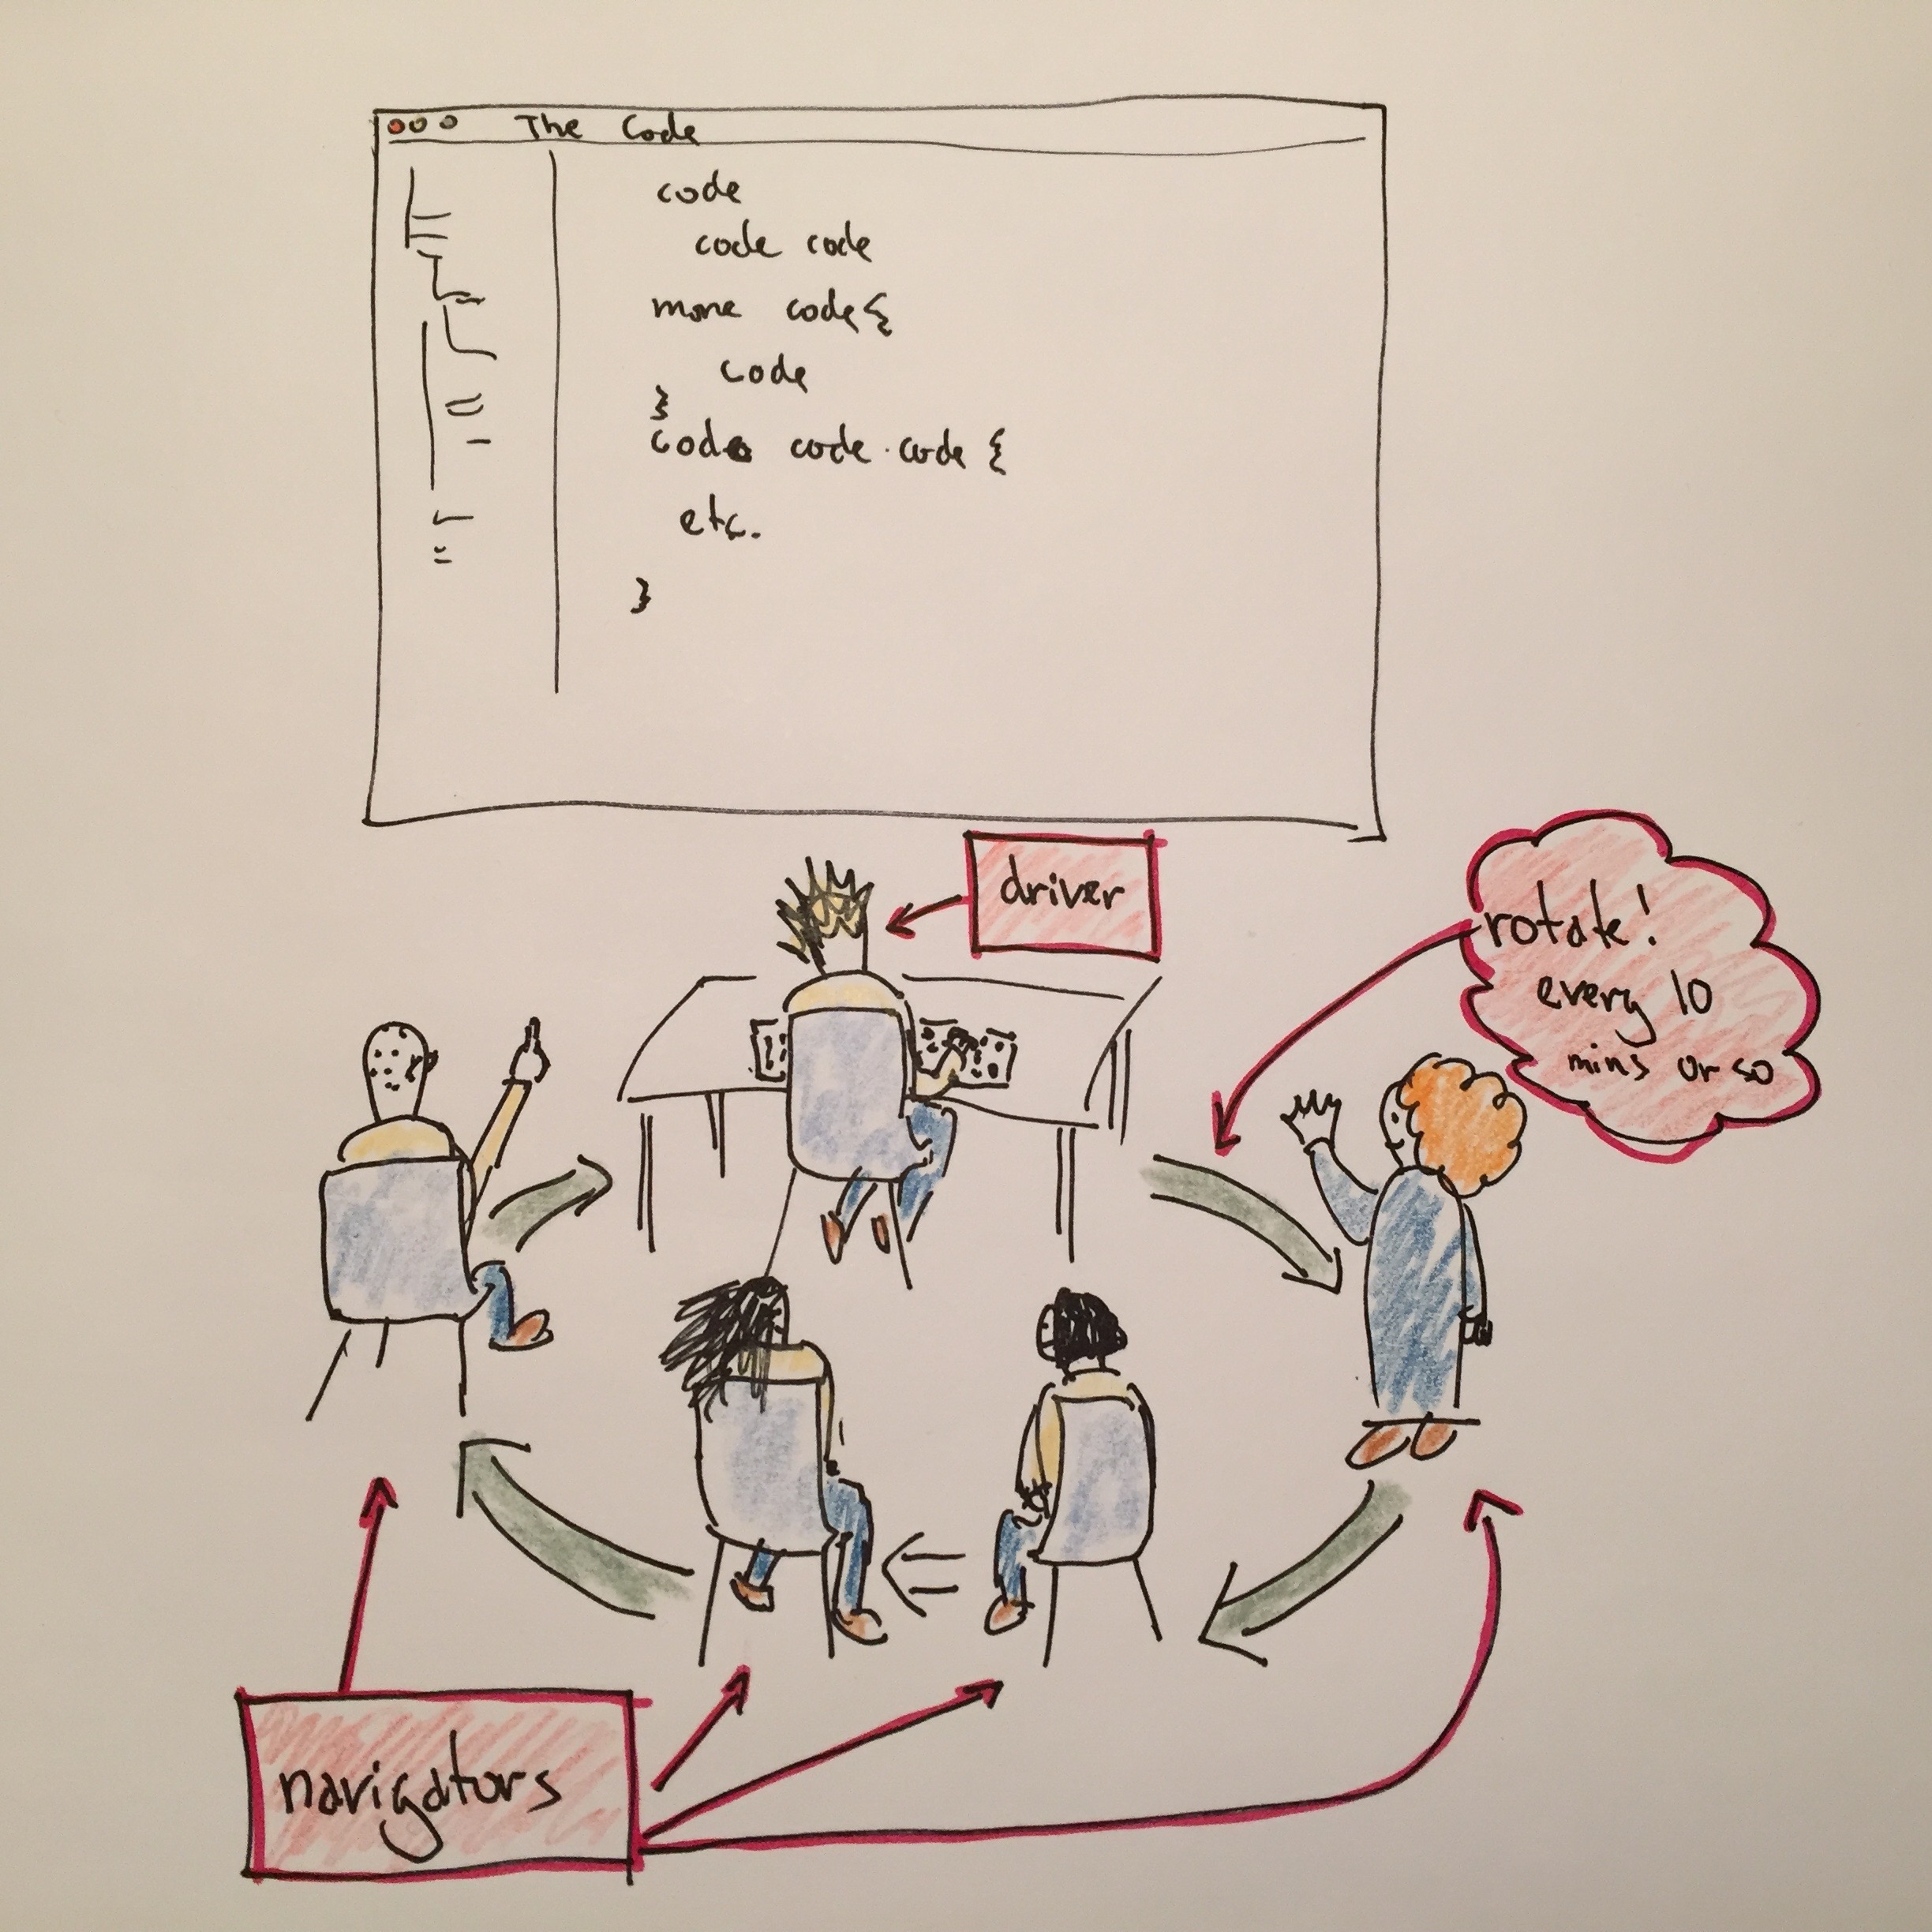 The Code
code
code code
more code {
code
}
code code.code {
etc.
}
driver
rotate!
every 10
mins or so
navigators